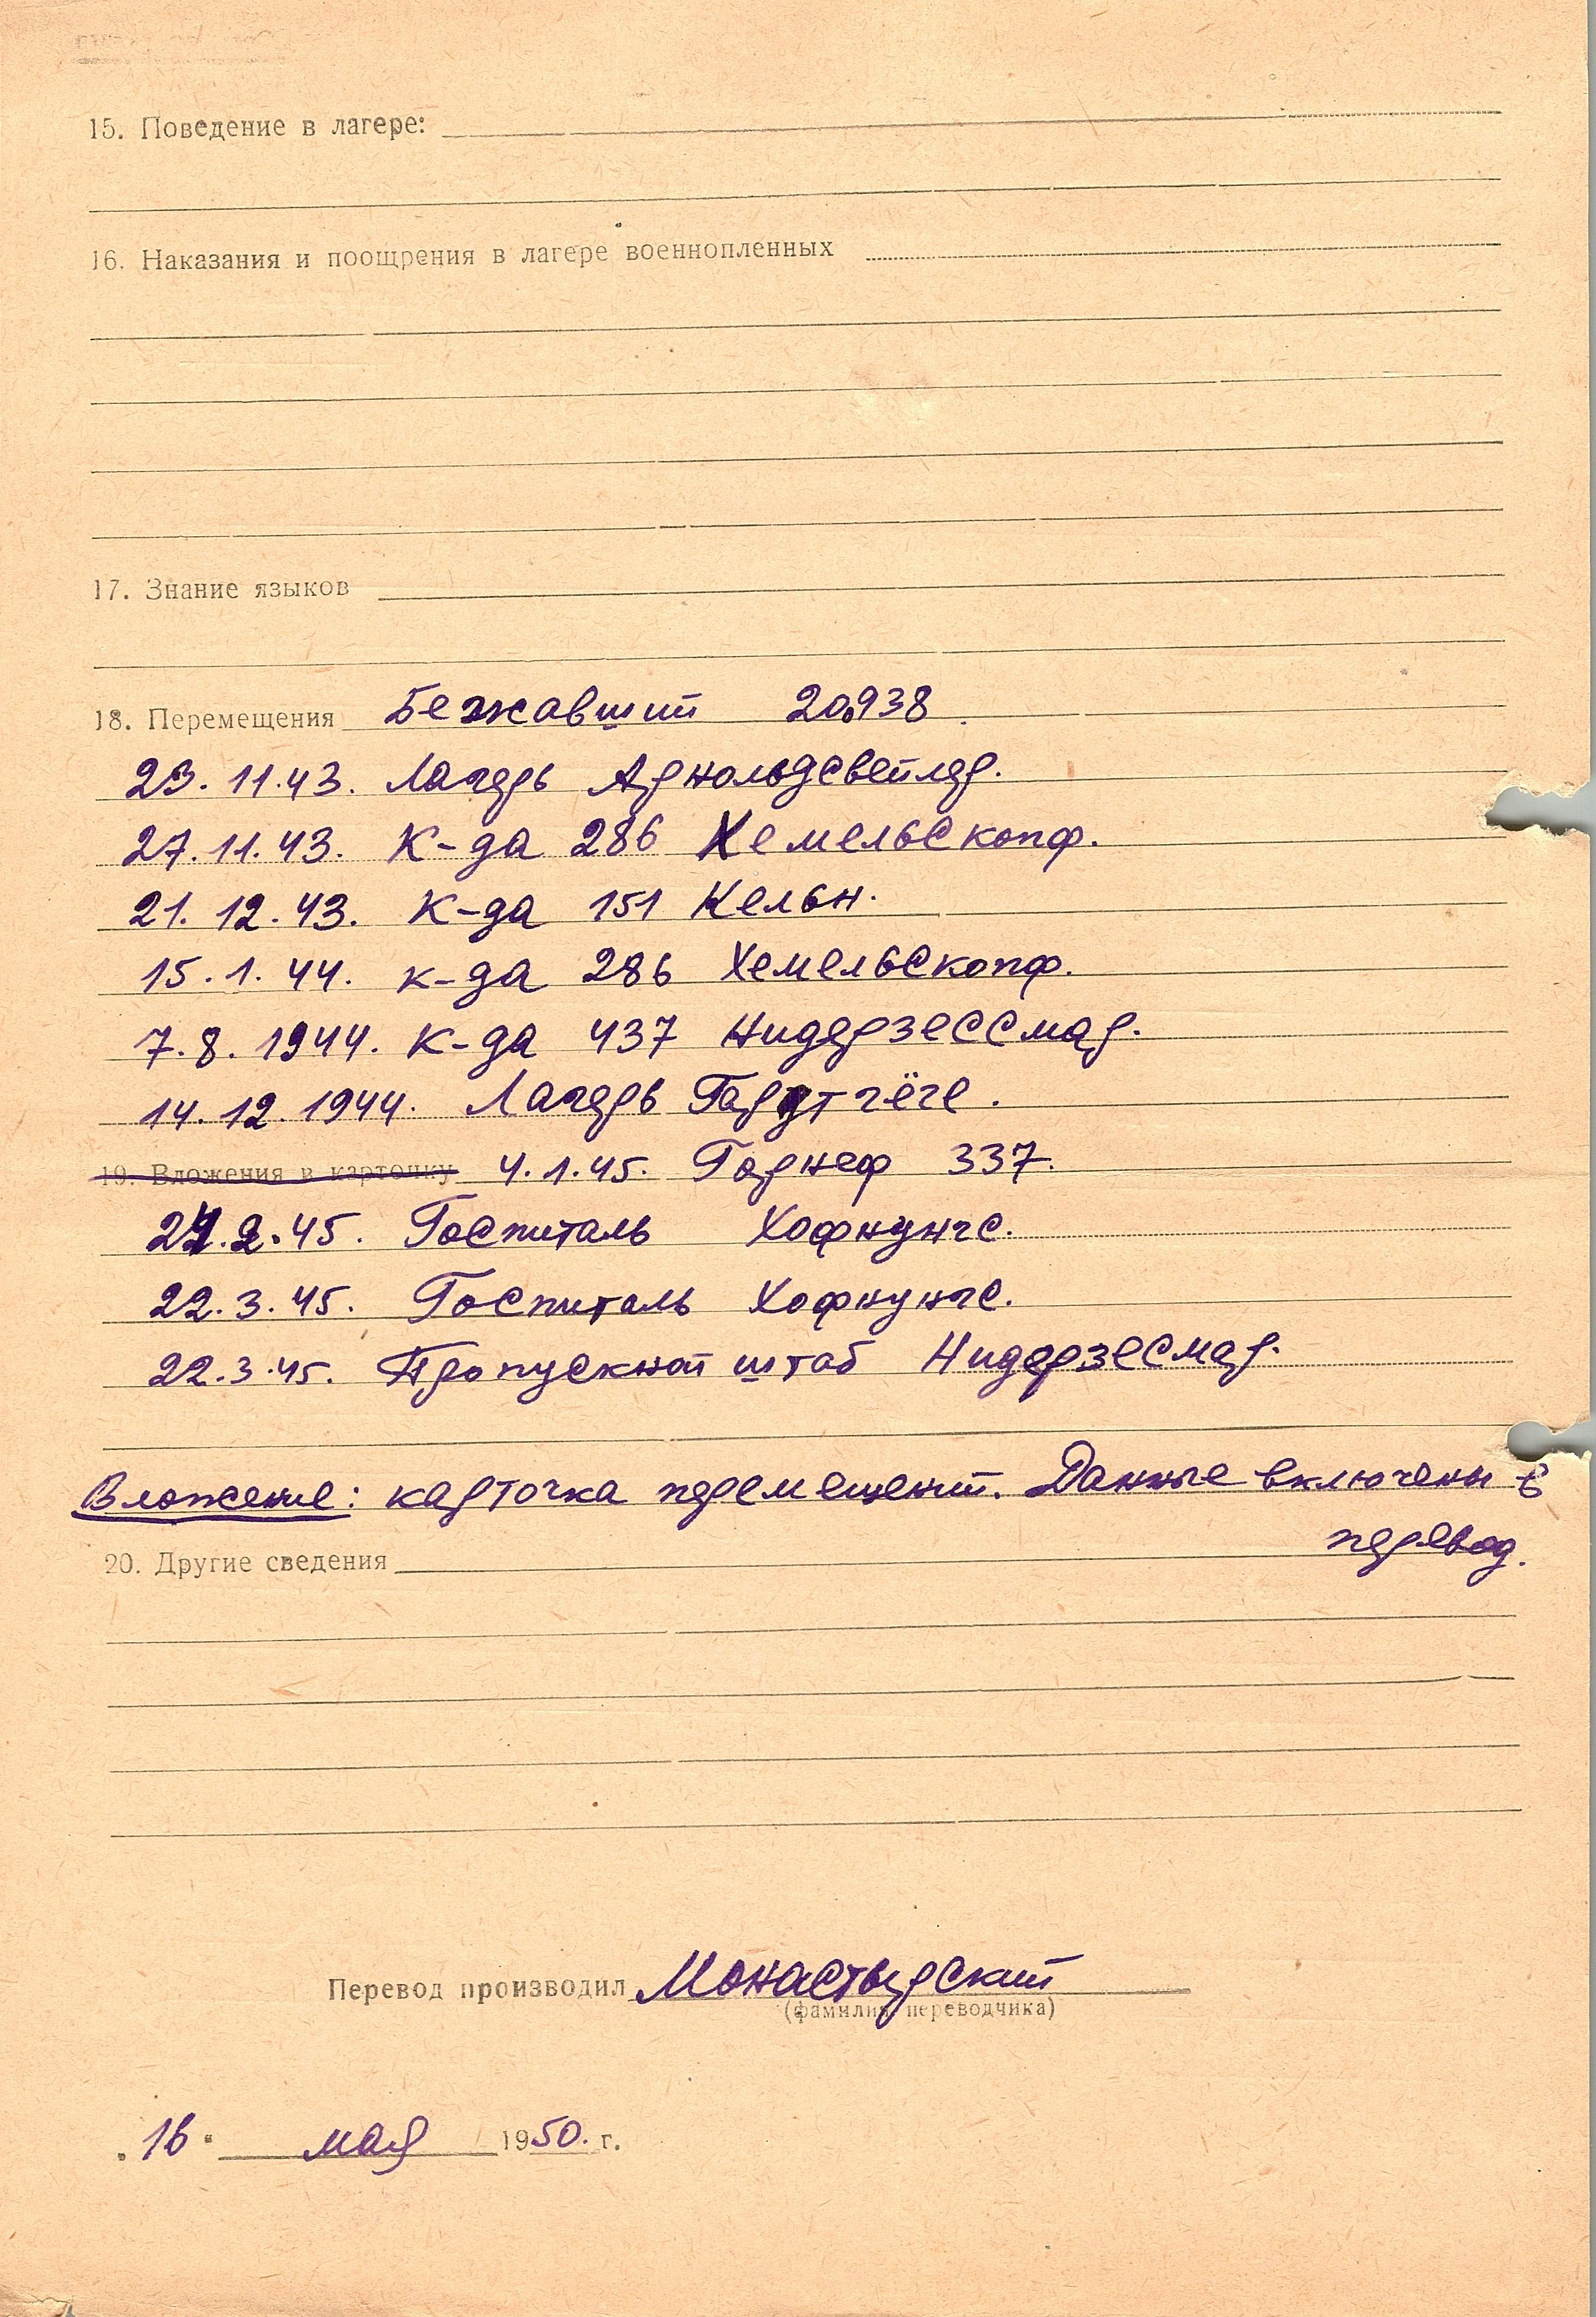 15. Поведение в лагере:
16. Наказания и поощрения в лагере военнопленных
17. Знание языков
18. Перемещения Бежавший 20938
23.11.43. Лагерь Арнольдсвейлер.
27.11.43. К-да 286 Хемельскопф.
21.12.43. К-да 151 Кельн.
15.1.44. к-да 286 Хемельскопф.
7.8.1944. к-да 437 Нидерзессмар.
14.12.1944. Лагерь
19. Вложения в карточку 4.1.45. Гарнеф 337.
2.45. Госпиталь Хофнунгс.
22.3.45. Госпиталь Хофнунгс.
22.3.45. Пропускной штаб Нидерзесмар.
Вложение: карточка перемещений. Данные включены в
перевод.
20. Другие сведения
Перевод производил Монастырский
(фамилия переводчика)
16 мая 1950. г.